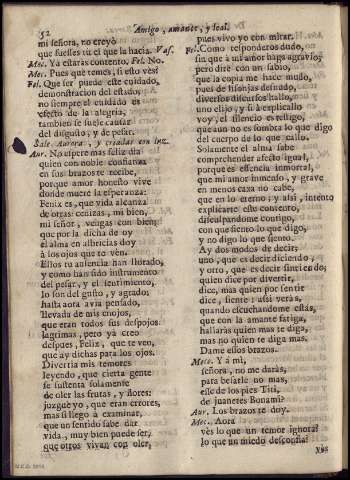 52
Amigo, amante, y leal.
mi señora, no creyò
que fuesses tu el que la hacia. Vas.
Mec. Ya estaràs contento. Fel. No.
Mec. Pues què temes, si esto vès?
Fel. Que ser pueda este cuidado,
demonstracion del estado,
no siempre el cuidado es
efecto de la alegria,
tambien se suele causar
del disgusto, y de pesar.
Sale Aurora, y criadas con luz.
Aur. No espere mas feliz dia
quien con noble confianza
en sus brazos te recibe,
porque amor honesto vive
donde muere la esperanza:
Fenix es, que vida alcanza
de otras cenizas, mi bien,
mi señor, vengas con bien,
que por la dicha de oy
el alma en albricias doy
à los ojos que te ven.
Ellos tu ausencia han llorado,
y como han sido instrumento
del pesar, y el sentimiento,
lo son del gusto, y agrado;
hasta aora avia pensado,
llevada de mis enojos,
que eran todos sus despojos
lagrimas, pero yà creo
despues, Felix, que te veo,
que ay dichas para los ojos.
Divertia mis temores
leyendo, que cierta gente
se sustenta solamente
de oler las frutas, y flores:
juzguè yo, que eran errores,
mas si llego à examinar,
que un sentido sabe dàr
vida, muy bien puede ser,
que otros vivan con oler,
pues vivo yo con mirar.
Fel. Como responderos dudo,
sin que à mi amor haga agravio;
pero dirè con un sabio,
que la copia me hace mudo,
pues de lisonjas desnudo,
diversos discursos hallo,
uno elijo, y si à explicallo
voy, el silencio es testigo,
que aun no es sombra lo que digo
del cuerpo de lo que callo.
Solamente el alma sabe
comprehender afecto igual,
porque es essencia inmortal,
que mi amor immenso, y grave
en menos casa no cabe,
que en lo eterno; y assi, intento
explicarte este contento,
disculpandome contigo,
con que siento lo que digo,
y no digo lo que siento.
Ay dos modos de decir;
uno, que es decir diciendo,
y otro, que es decir sintiendo;
quien dice por divertir,
dice, mas quien por sentir
dice, siente; assi veràs,
quando escuchandome estàs,
que con la amante fatiga,
hallaràs quien mas te diga,
mas no quien te diga mas.
Dame essos brazos.
Mec. Y à mi,
señora, no me daràs,
para besarle no mas,
esse de los pies Titi,
de juanetes Bonamì?
Aur. Los brazos te doy.
Mec. Aora
vès lo que un temor ignora?
lo que un miedo desconfia?